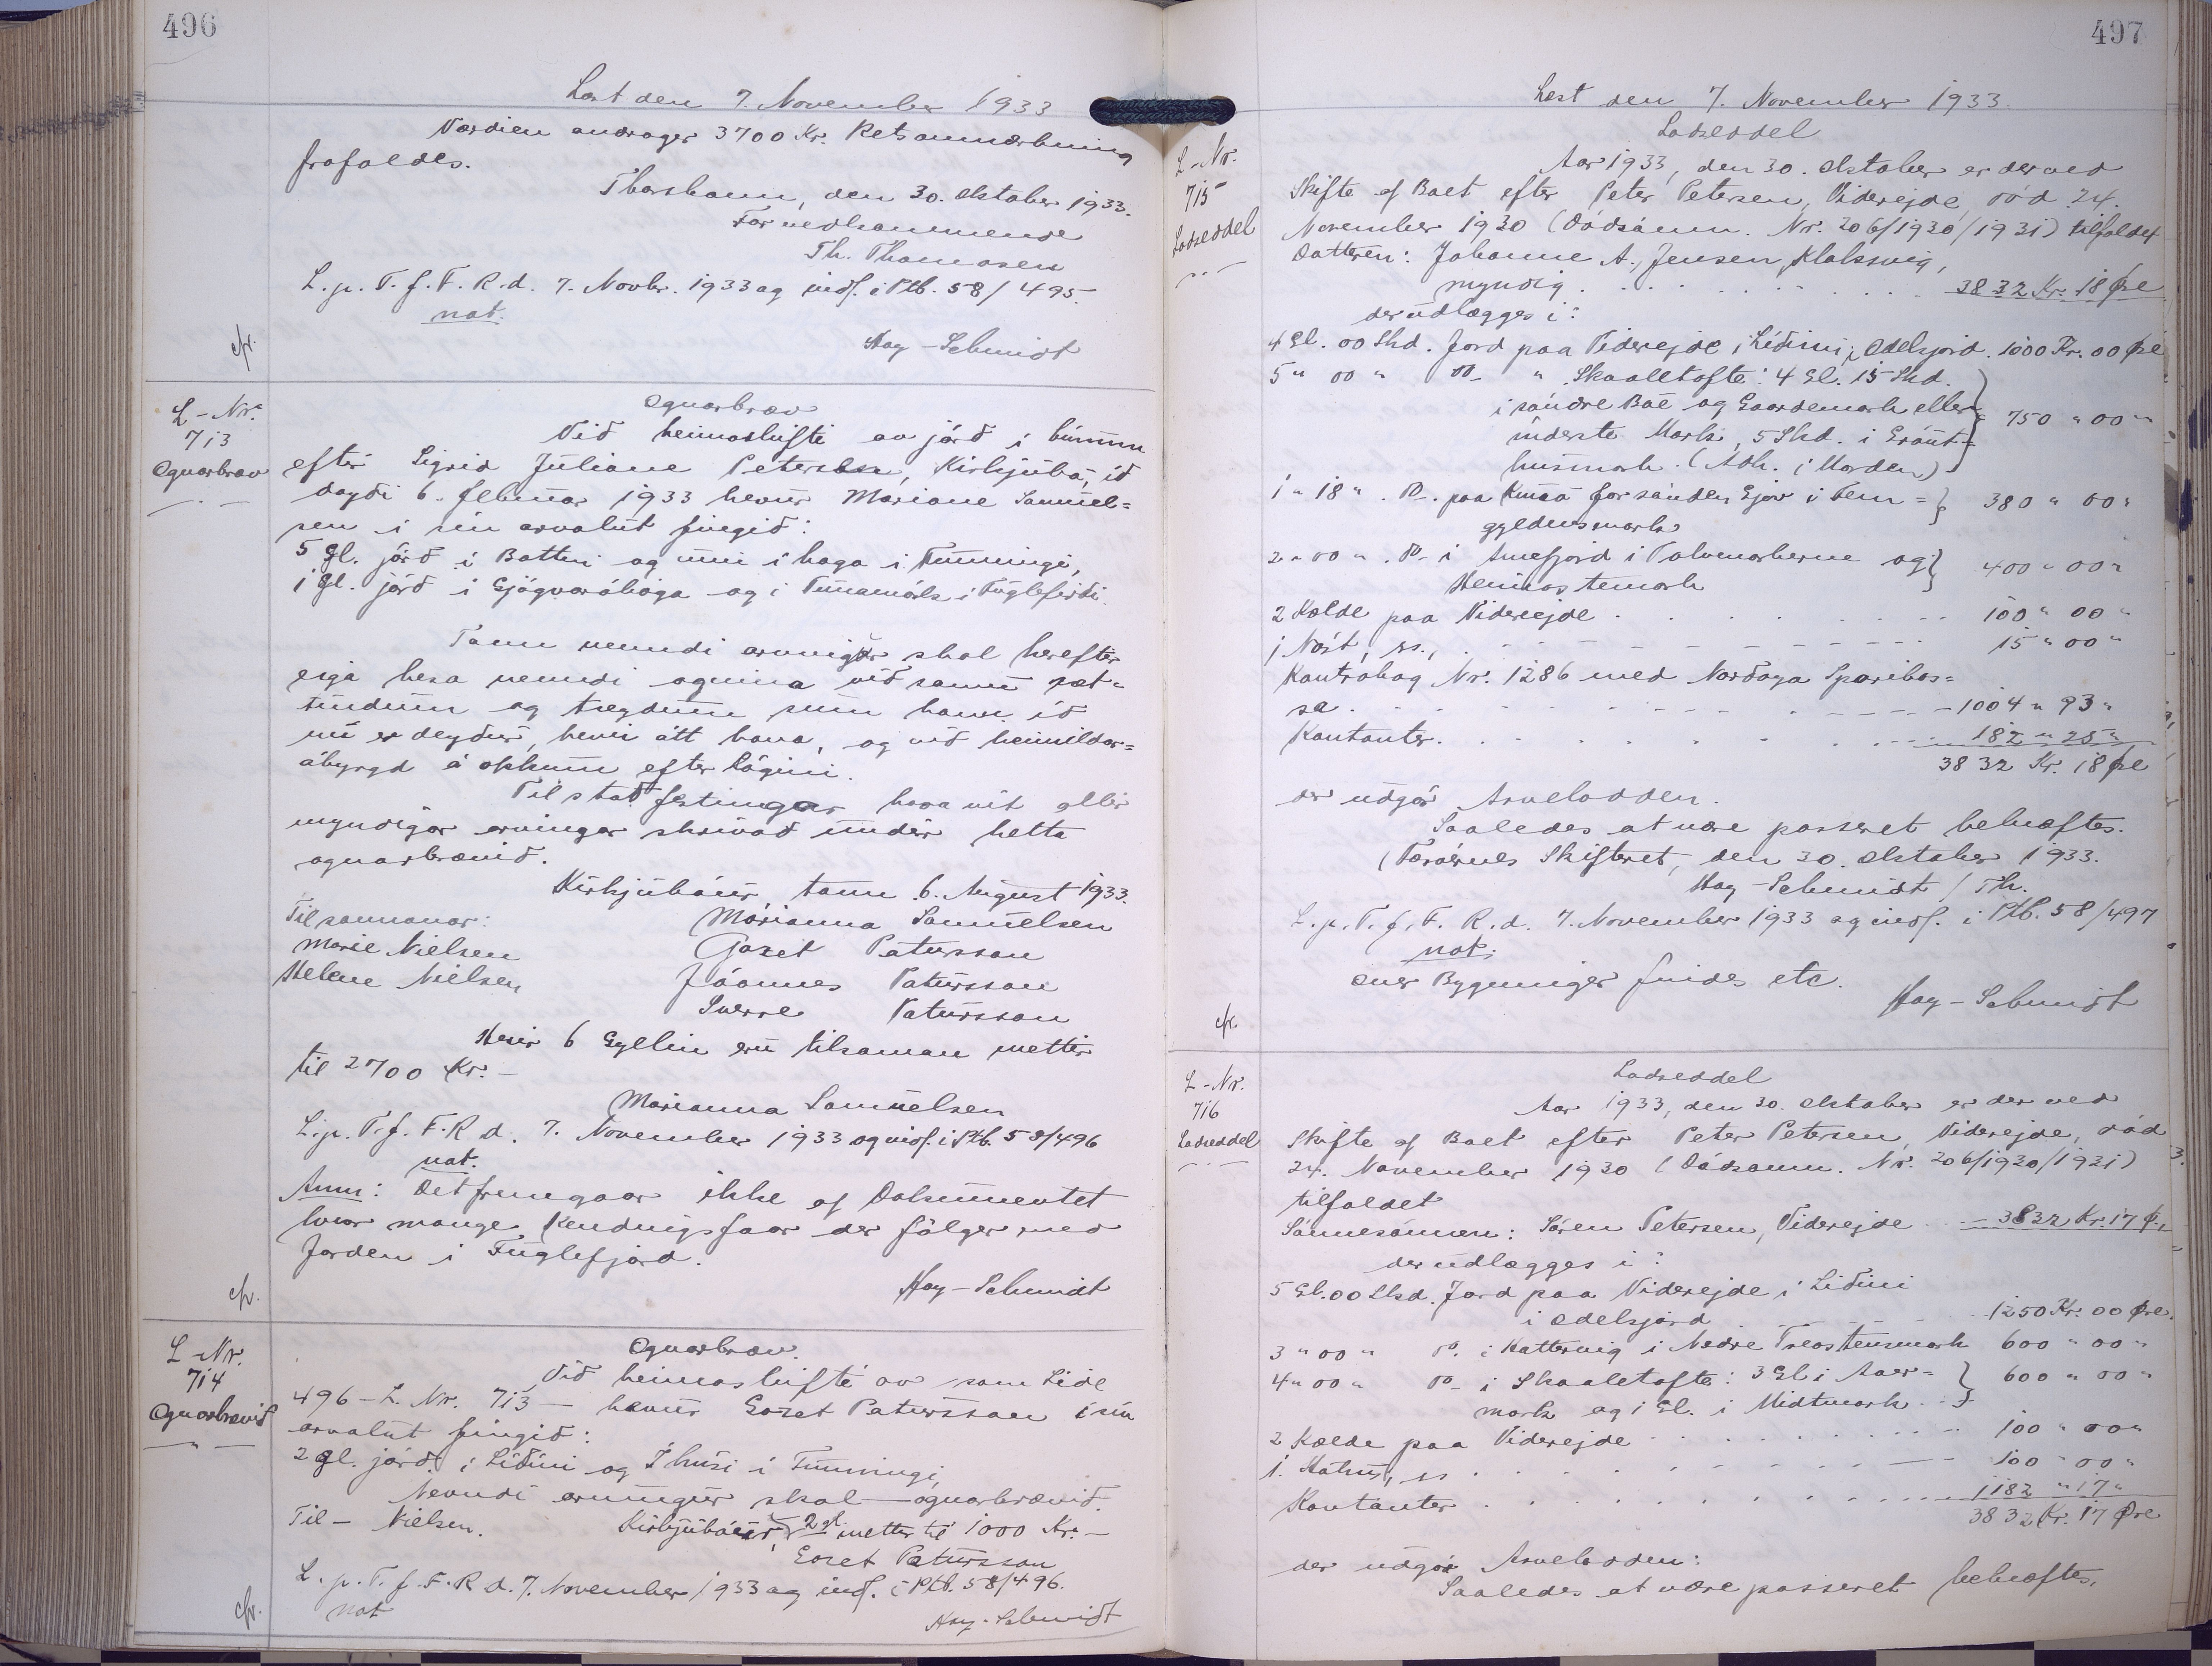 496
Læst den 7. November 1933
Værdien andrager 3700 Kr. Retsanmærkning
frafaldes.
Thorshavn, den 30. Oktober 1933.
For vedkommende
Th. Thomasen
L. p. T. f. F. R. d. 7. Novbr. 1933 og indf. i Ptb. 58/495.
not.
Hay-Schmidt
cfr.
L-Nr.
713
Ognarbræv
Ognarbræv
Við heimaskifti av jørð í búnum
eftir Sigrid Juliane Petersen, Kirkjubø, ið
doyði 6. februar 1933 hevur Mariane Samuel=
sen i sín arvalut fingið:
5 gl. jørð í Bøttni og inni í haga í Funningi,
1 gl. jørð í Gjógvaráhaga og i Túnamørk i Fuglefirði.
Tann nevndi arvingur skal herefter
eiga hesa nevndi ognina við somu ræt=
tindum og treydum sum hann ið
nú er deyður, hevur átt hana, og við heimildar=
ábyrgd á okkum eftir lógini.
Til staðfestingar hava vit allir
myndigar arvingar skrivað undir hetta
ognarbrævið.
Kirkjubøur, tann 6. August 1933.
Til sannanar:
Marianna Samuelsen
Marie Nielsen
Gazet Patursson
Helene Nielsen
Jóannes Patursson
Sverre Patursson
Hesir 6 Gyllin eru tilsaman mettir
til 2700 Kr. –
Marianna Samuelsen
L. p. T. f. F. R. d. 7. November 1933 og indf. i Ptb. 58/496
not.
Anm: Det fremgaar ikke af Dokumentet
hvor mange Kendingsfaar der følger med
Jorden i Fuglefjord.
Hay-Schmidt
cfr.
L-Nr.
714
Ognarbrævið
Ognarbræv.
Við heimaskifti av som Side
496 – L. Nr. 713 – hevur Gazet Patursson i sín
arvalut fingið:
2 gl. jørð. i Líðini og Í húsi i Funningi,
Nevndi arvingur skal – ognarbrævið.
Til – Nielsen. Kirkjubøur, 2 gl. mettir til 1000 Kr. –
Gazet Patursson
L. p. T. f. F. R. d. 7. November 1933 og indf. i Ptb. 58/496.
not
Hay-Schmidt
cfr.
497
Læst den 7. November 1933.
L-Nr.
715
Lodseddel
Lodseddel
Aar 1933, den 30. Oktober er der ved
Skifte af Boet efter Peter Petersen, Viderejde, død 24.
November 1930 (Dødsanm. Nr. 206/1930/1931) tilfaldet
Datteren: Johanne A. Jensen, Klaksvig,
myndig . . . 3832 Kr. 18 Øre
der udlægges i:
4 Gl. 00 Skd. Jord paa Viderejde i Líðini, Odelsjord. 1000 Kr. 00 Øre
5 " 00 " Do - " Skaaletofte: 4 Gl. 15 Skd.
i søndre Bøe og Gaardemark eller
inderste Mark, 5 Skd. i Grønt=
husmark. (Adk. i Morden) } 750 " 00 "
1 " 18 " . Do. paa Kunø for sønden Gjov i Fem=
gyldensmark } 380 " 00 "
2 " 00 " . Do - i Arnefjord i Tolvmarkerne og
Heimastemark } 400 " 00 "
2 Kælde paa Viderejde . . . 100 " 00 "
1 Nøst, ss., . . . 15 " 00 "
Kontrabog Nr. 1286 med Norðoya Sparikas=
sa . . . 1004 " 93 "
Kontanter . . . 182 " 25 "
3832 Kr. 18 Øre
der udgør Arvelodden.
Saaledes at være passeret bekræftes.
Færøernes Skifteret, den 30. Oktober 1933.
Hay-Schmidt / Th.
L. p. T. f. F. R. d. 7. November 1933 og indf. i Ptb. 58/497
not.
Bygninger findes etc.
Hay-Schmidt
cfr.
L-Nr.
716
Lodseddel
Lodseddel
Aar 1933, den 30. Oktober er der ved
Skifte af Boet efter Peter Petersen, Viderejde, død
24. November 1930 (Dødsanm. Nr. 206/1930/1931)
tilfaldet
Sønnesønnen: Søren Petersen, Viderejde . . 3832 Kr. 17 Ø.,
der udlægges i:
5 Gl. 00 Skd. Jord paa Viderejde i Liðini
i Odelsjord . . . 1250 Kr. 00 Øre.
3 " 00 " Do. i Hattervig i Nedre Treostensmark 600 " 00 "
4 " 00 " Do - i Skaaletofte: 3 Gl. i Aaer=
mark og 1 Gl. i Midtmark . . } 600 " 00 "
2 Kælde paa Viderejde . . . 100 " 00 "
1. , ss . . . 100 " 00 "
Kontanter . . . 1182 " 17 "
3832 Kr. 17 Øre
der udgør Arvelodden:
Saaledes at være passeret bekræftes.